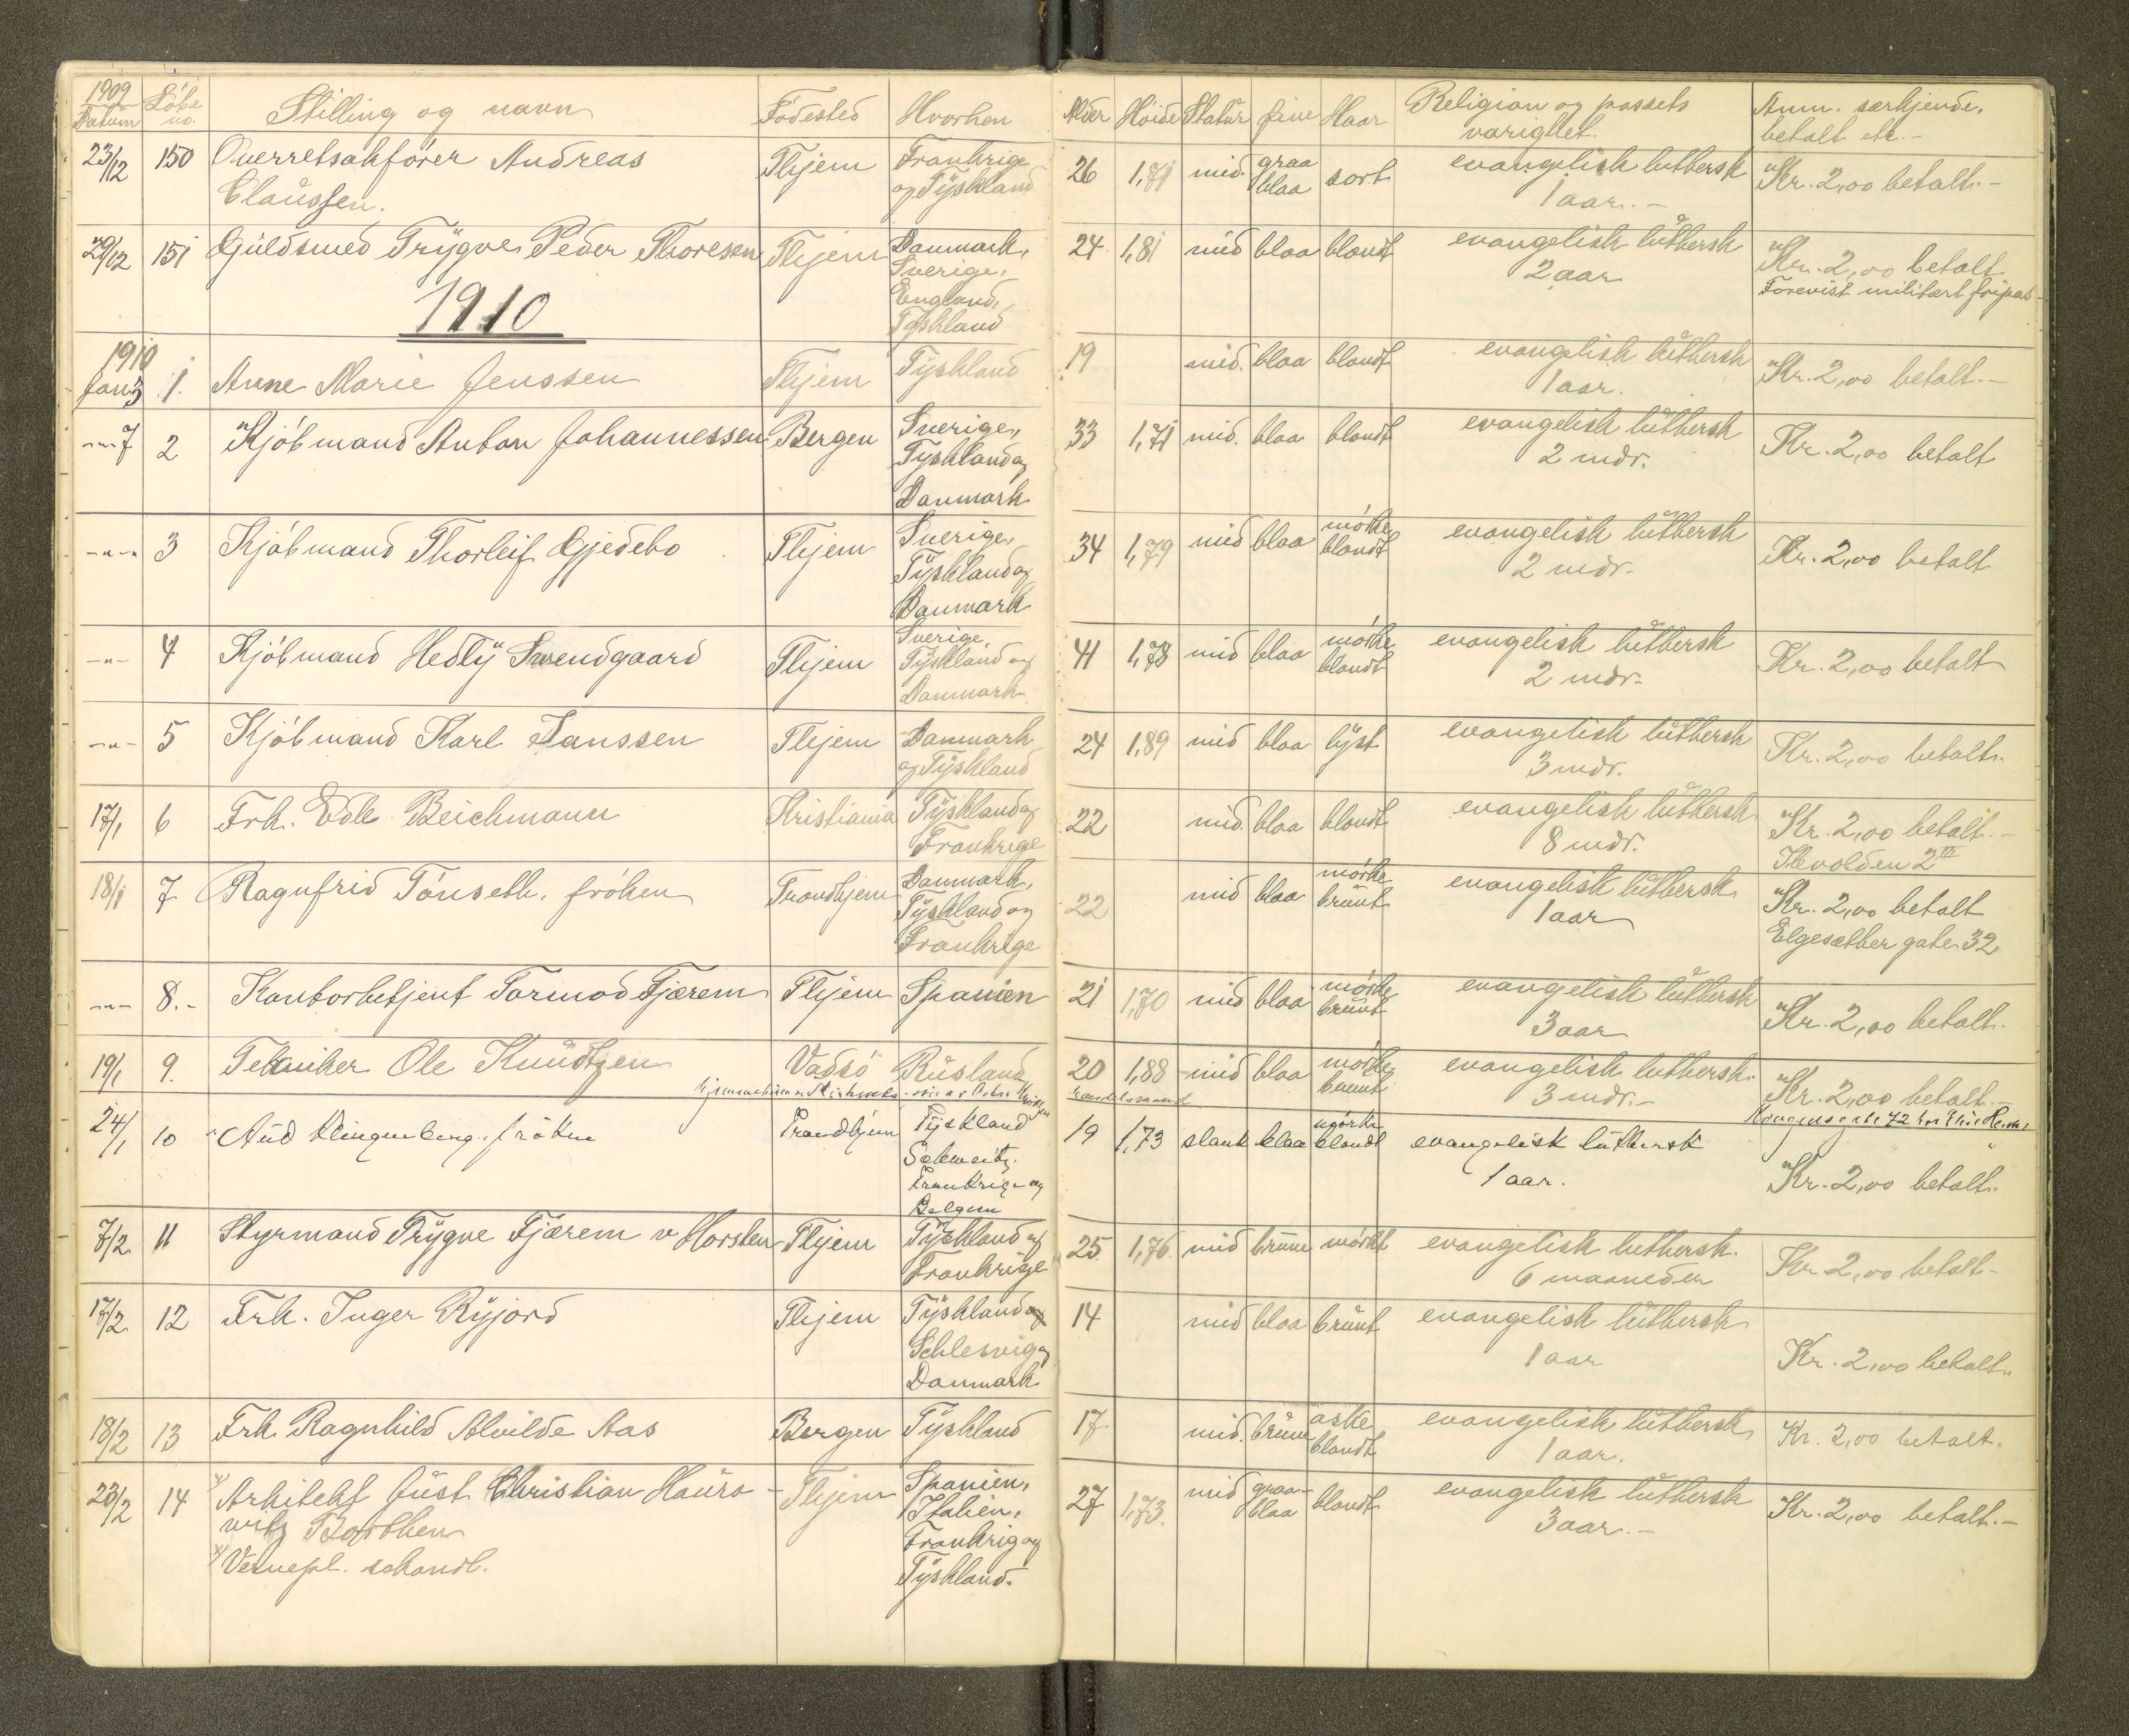 1909
Datum Løbe no. Stilling og navn Födested Hvorhen Alder Höide Statur Öine Haar Religion og passets varighet. Anm. særkjende, betalt etc.-
23/12 150 Overretsakfører Andreas Thjem Frankrige 26 1,71 mid. graa sort evangelisk luthersk Kr. 2,00 betalt.-
Claussen. og Tyskland blaa 1 aar.-
29/12 151 Guldsmed Trygve Peder Thoresen Thjem Danmark, 24 1,81 mid blaa blondt evangelisk luthersk Kr. 2,00 betalt
Sverige, 2 aar Forevist militært fripas-
England,
Tyskland
1910
1910
Jan 3 1. Anne Marie Jenssen Thjem Tyskland 19 mid. blaa blondt evangelisk luthersk Kr. 2,00 betalt.-
1 aar.
-"- 7 2 Kjøbmand Anton Johannessen Bergen Sverige, 33 1,71 mid. blaa blondt evangelisk luthersk Kr. 2,00 betalt
Tyskland og 2 mdr.
Danmark
-"- 3 Kjøbmand Thorleif Gjedebo Thjem Sverige, 34 1,79 mid blaa mørke evangelisk luthersk Kr. 2,00 betalt
Tyskland og blondt 2 mdr.
Danmark
-"- 4 Kjøbmand Hedly Svendgaard Thjem Sverige, 41 1,78 mid blaa mørke evangelisk luthersk Kr. 2,00 betalt
Tyskland og blondt 2 mdr.
Danmark
-"- 5 Kjøbmand Karl Janssen Thjem Danmark 24 1,89 mid blaa lyst evangelisk luthersk Kr. 2,00 betalt.
og Tyskland 3 mdr.
17/1 6 Frk. Edle Beichmann Kristiania Tyskland og 22 mid. blaa blondt evangelisk luthersk Kr. 2,00 betalt.-
Frankrige 8 mdr.
18/1 7 Ragnfrid Tönseth, fröken Trondhjem Danmark, 22 mid blaa mørke evangelisk luthersk Kr. 2,00 betalt
Tyskland og brunt 1 aar Elgesæther gate 32
Frankrige
-"- 8.- Kontorbetjent Tormod Fjærem Thjem Spanien 21 1,70 mid blaa mørke evangelisk luthersk Kr. 2,00 betalt.
brunt 3 aar
19/1 9. Tekniker Ole Knudtzen Vadsö Rusland 20 1,88 mid blaa mørke evangelisk luthersk. Kr. 2,00 betalt.-
brunt 3 mdr.-
24/1 10 Aud Klingenberg, fröken Trondhjem Tyskland 19 1,73 slank blaa mørke evangelisk luthersk
Schweitz, blondt 1 aar. Kr. 2,00 betalt.
Frankrige og
Belgien
7/2 11 Styrmand Trygve Fjærem v Horsten Thjem Tyskland og 25 1,76. mid brune mørkt evangelisk luthersk. Kr. 2,00 betalt-
Frankrige 6 maaneder
17/2 12 Frk. Inger Ryjord Thjem Tyskland og 14 mid blaa brunt evangelisk luthersk
Schlesvig og 1 aar Kr. 2,00 betalt.
Danmark
18/2 13 Frk. Ragnhild Alvilde Aas Bergen Tyskland 17 mid. brune aske evangelisk luthersk Kr. 2,00 betalt.
blondt 1 aar.
23/2 14 x) Arkitekt Just Christian Hauro- Thjem Spanien, 27 1,73. mid graa- blondt evangelisk luthersk Kr. 2,00 betalt.-
witz Borthen Italien, blaa 3 aar.-
x) Vernepl. Frankrig og
Tyskland.